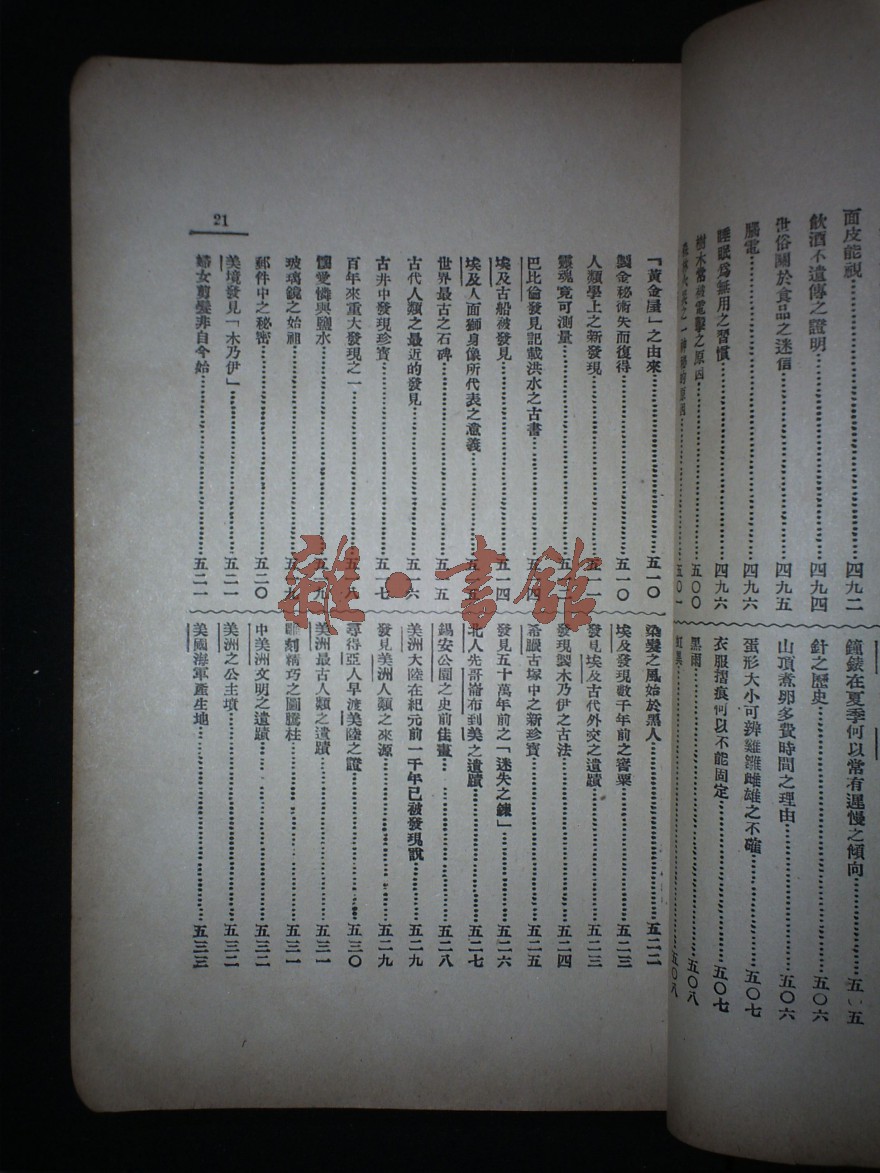 面皮能視……四九二
飲酒不遺傳之證明……四九四
世俗關於食品之迷信……四九五
腦電……四九六
睡眠爲無用之習慣……四九六
樹木常被電擊之原因……五〇〇
五〇一
鐘錶在夏季何以常有遲慢之傾向……五〇五
針之歷史……五〇六
山頂煮卵多費時間之理由……五〇六
蛋形大小可辨雞雛雌雄之不確……五〇七
衣服摺痕何以不能固定……五〇七
黑雨……五〇八
五〇八
21
「黃金屋」之由來……五一〇
製金秘術失而復得……五一〇
人類學上之新發現……五一一
靈魂竟可測量……五一二
巴比倫發見記載洪水之古書……五一四
埃及古船被發見……五一四
埃及人面獅身像所代表之意義……五一五
世界最古之石碑……五一五
古代人類之最近的發見……五一六
古井中發現珍寶……五一七
百年來重大發現之一……五一八
戀愛憐與鹽水……五一九
玻璃鏡之始祖……五一九
郵件中之秘密……五二〇
美境發見「木乃伊」……五二一
婦女剪髮非自今始……五二一
染髮之風始於黑人……五二二
埃及發現數千年前之罌粟……五二三
發見埃及古代外交之遺蹟……五二三
發現製木乃伊之古法……五二四
希臘古塚中之新珍寶……五二五
發見五十萬年前之「迷失之鍊」……五二六
北人先哥崙布到美之遺蹟……五二七
錫安公園之史前佳畫……五二八
美洲大陸在紀元前一千年已被發現說……五二九
發見美洲人類之來源……五二九
尋得亞人早渡美陸之證……五三〇
美洲最古人類之遺蹟……五三一
雕刻精巧之圖騰柱……五三一
中美洲文明之遺蹟……五三二
美洲之公主墳……五三二
美國海軍產生地……五三三
雜·書館